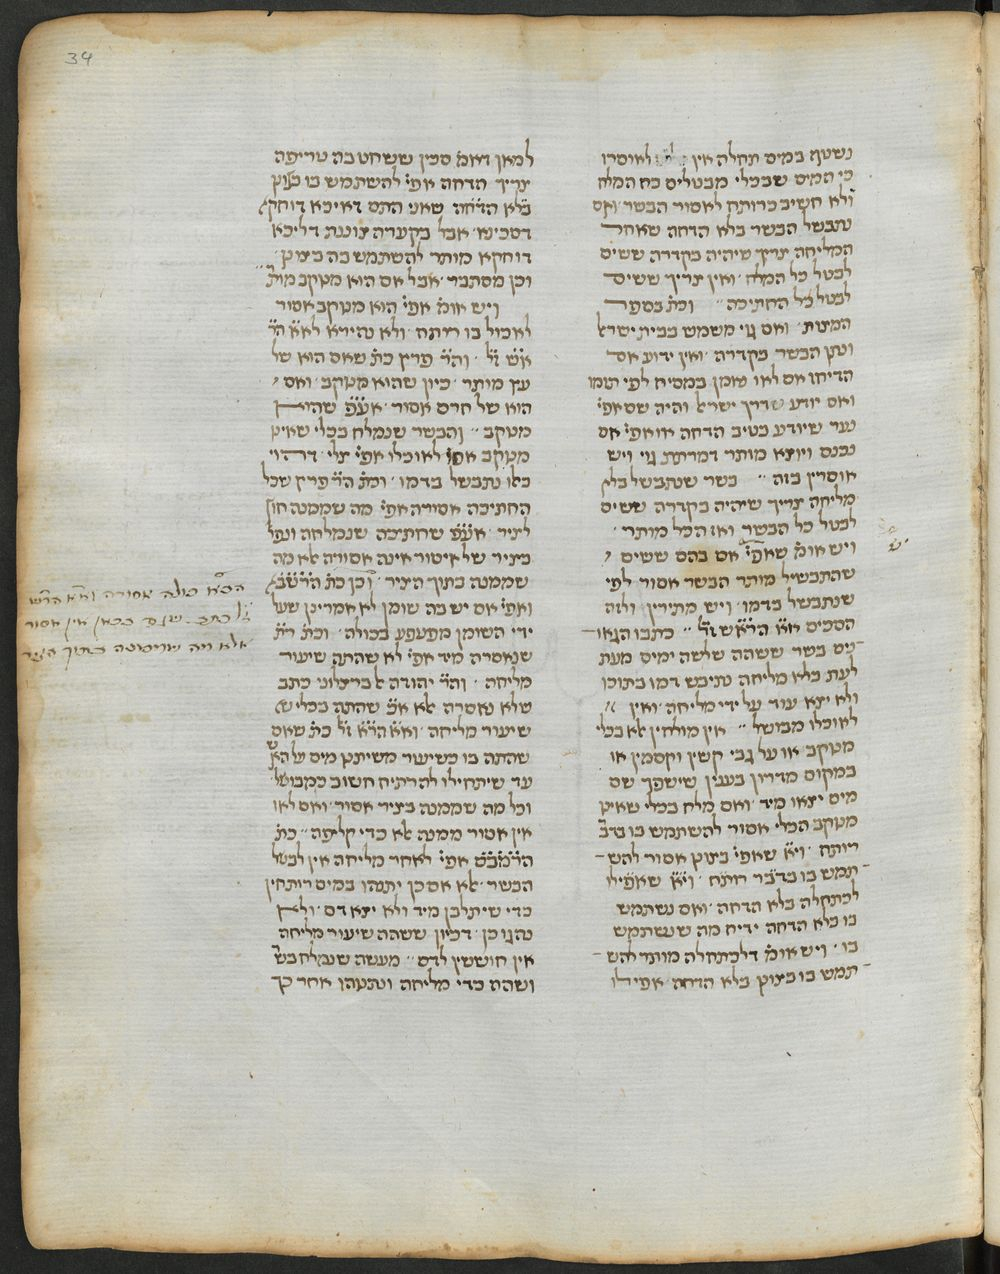 34
נשטף במים תחלה אין לאוסרו
כי המים שבכלי מבטלים כח המלח
ולא חשיב כרותח לאסור הבשר ואם
נתבשל הבשר בלא הדחה שאחר
המליחה צריך שיהיה בקדרה ששים
לבטל כל המלח ואין צריך ששים
לבטל כל החתיכה וכת' בספר
המצות ואם גוי משמש בבית ישר'
ונתן הבשר בקדרה ואין ידוע אם
הדיחו אם לאו נאמן במסיח לפי תומו
ואם יודע שדרך ישר' והיה שם אפי'
נער שיודע בטיב הדחה או אפי' אם
נכנס ויוצא מותר דמרתת גוי ויש
אוסרין בזה בשר שנתבשל בלא
מליחה צריך שיהיה בקדרה ששים
לבטל כל הבשר ואז הכל מותר
ויש אומ' שאפי' אם בהם ששים
שהתבשיל מותר הבשר אסור לפי
שנתבשל בדמו ויש מתירין ולזה
הסכים א״א הרא״ש ז״ל כתבו הגאו-
נים בשר ששהה שלשה ימים מעת
לעת בלא מליחה נתיבש דמו בתוכו
ולא יצא עוד על ידי מליחה ואין
לאוכלו מבושל אין מולחין אלא בכלי
מנוקב או על גבי קשין וקסמין או
במקום מדרון בענין שישפך שם
מים יצאו מיד ואם מלח בכלי שאינו
מנוקב הכלי אסור להשתמש בו בדב'
רותח וי״א שאפי' בצונן אסור להש-
תמש בו בדבר רותח וי״א שאפילו
לכתחלה בלא הדחה ואם נשתמש
בו בלא הדחה ידיח מה שנשתמש
בו ויש אומ' דלכתחלה מותר להש-
תמש בו בצונן בלא הדחה אפילו
למאן דאמ' סכין ששחט בה טריפה
צריך הדחה אפי' להשתמש בו בצונן
בלא הדחה שאני התם דאיכא דוחקא
דסכינא אבל בקערה צוננת דליכא
דוחקא מותר להשתמש בה בצונן
וכן מסתבר אבל אם הוא מנוקב מות'
ויש אומ' אפי' הוא מנוקב אסור
לאכול בו רותח ולא נהירא לא״א הר'
א״ש ז״ל והר' פרץ כת' שאם הוא של
עץ מותר כיון שהוא מנוקב ואם
הוא של חרס אסור אע״פ שהוא
מנוקב והבשר שנמלח בכלי שאינו
מנוקב אסור לאוכלו אפי' צלי דהוי
כאלו נתבשל בדמו וכת' הר' פרץ שכל
החתיכה אסורה אפי' מה שממנה חוץ
לציר אע״פ שחתיכה שנמלחה ונפל
בציר של איסור אינה אסורה אלא מה
שממנה בתוך הציר וכן כת' הרשב״א
ואפי' אם יש בה שומן לא אמרינן שעל
ידי השומן מפעפע בכולה וכת' ר״ת
שנאסרה מיד אפי' לא שהתה שיעור
מליחה והר' יהודה אלברצלוני כתב
שלא נאסרה אלא א״כ שהתה בכלי
שיעור מליחה וא״א הרא״ש ז״ל כת' שאם
שהתה בו כשיעור משיתנן מים על האש
עד שיתחילו להרתיח חשוב כמבושל
וכל מה שממנה בציר אסור ואם לאו
אין אסור ממנה אלא כדי קליפה כת'
הרמב״ם אפי' לאחר מליחה אין לבשל
הבשר אלא אם כן יתנהו במים רותחין
כדי שיתלבן מיד ולא יצא דם ולא
נהגו כן דכיון ששהה שיעור מליחה
אין חוששין לדם מעשה שנמלח בשר
ושהה כדי מליחה ונתנהו אחר כך
כולה אסורה וא״א הרא״ש
ז״ל כתב שגם בכאן אין אסור
אלא מה שממנה בתוך הציר